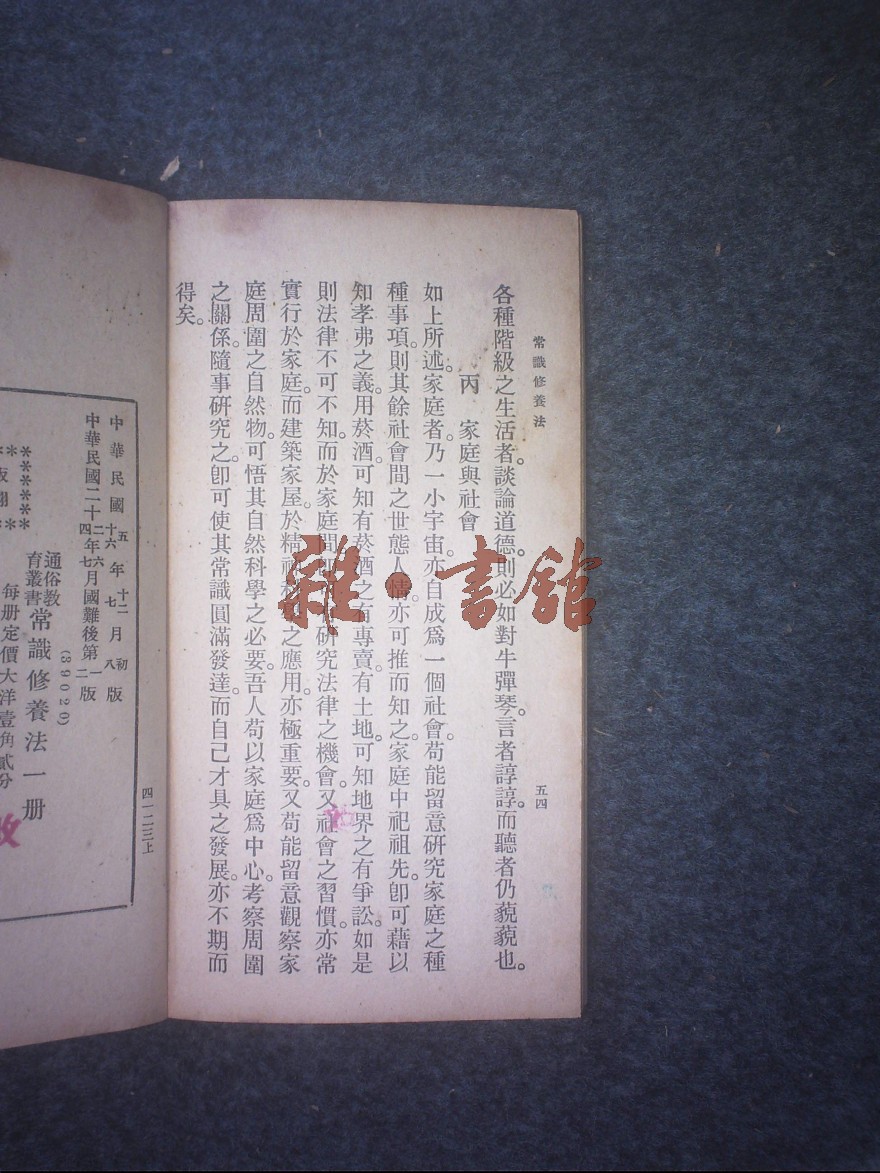 常識修養法
五四
各種階級之生活者。談論道德。則必如對牛彈琴。言者諄諄。而聽者仍藐藐也。
丙 家庭與社會
如上所述。家庭者。乃一小宇宙。亦自成爲一個社會。苟能留意硏究家庭之種
種事項。則其餘社會間之世態人情。亦可推而知之。家庭中祀祖先。卽可藉以
知孝弗之義。用菸酒。可知有菸酒之有專賣。有土地。可知地界之有爭訟。如是
則法律不可不知。而於家庭間 硏究法律之機會。又社會之習慣。亦常
實行於家庭。而建築家屋。於精神 之應用。亦極重要。又苟能留意觀察家
庭周圍之自然物。可悟其自然科學之必要。吾人苟以家庭爲中心。考察周圍
之關係。隨事硏究之。卽可使其常識圓滿發達。而自己才具之發展。亦不期而
得矣。
雜·書館
中華民國十五年十二月初版
中華民國二十二年六月國難後第一版
中華民國二十四年七月國難後第二版
通俗教育叢書 常識修養法一册
(39029)
每册定價大洋壹角貳分
四一二三上